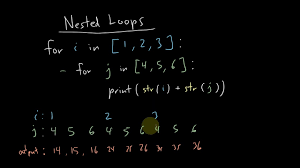 Nested Loops
for i in [1, 2, 3]:
- for j in [4, 5, 6]:
print(str(i) + str(j))
i: 1 2 3
j: 4 5 6 4 5 6 4 5 6
output: 14, 15, 16 24 25 26 34 35 36